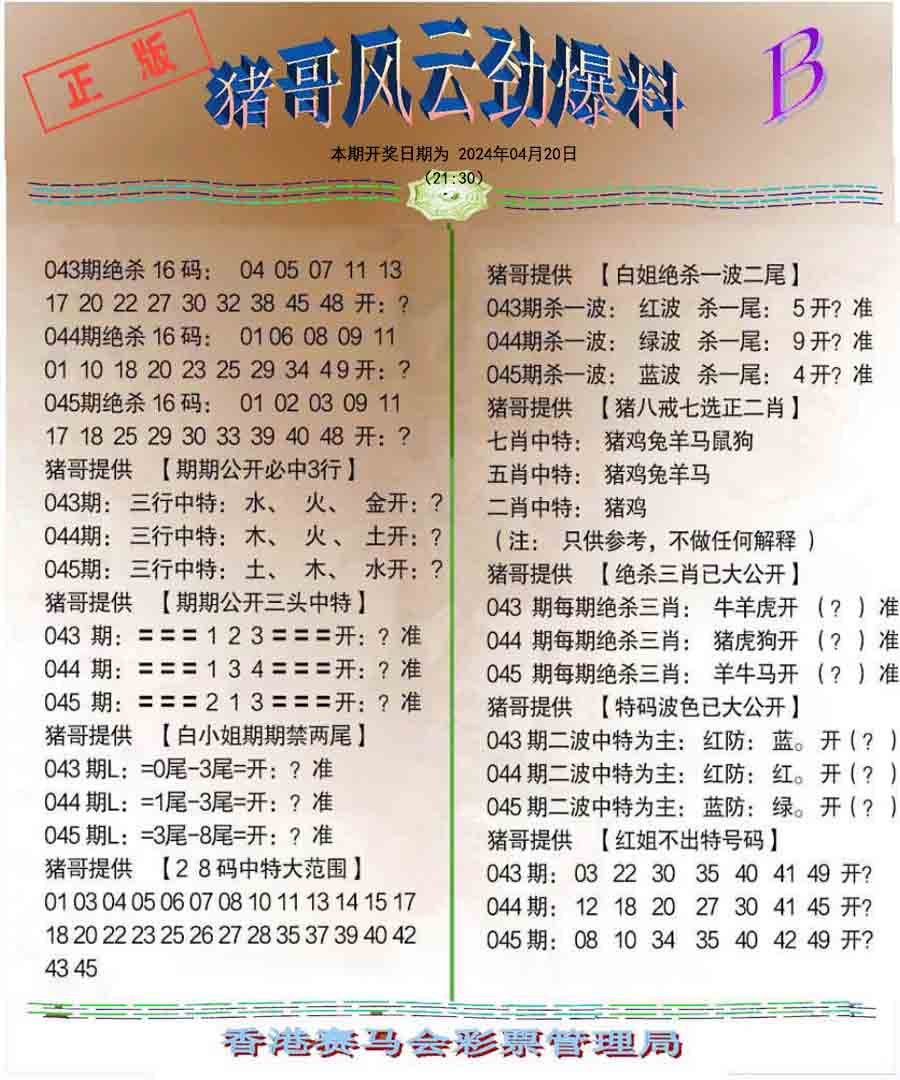 正版
猪哥风云劲爆料
B
本期开奖日期为 2024年04月20日
(21:30)
043期绝杀16码： 04 05 07 11 13
17 20 22 27 30 32 38 45 48 开：?
044期绝杀16码： 01 06 08 09 11
01 10 18 20 23 25 29 34 49 开：?
045期绝杀16码： 01 02 03 09 11
17 18 25 29 30 33 39 40 48 开：?
猪哥提供 【期期公开必中3行】
043期：三行中特：水、 火、 金开：?
044期：三行中特：木、 火、 土开：?
045期：三行中特：土、 木、 水开：?
猪哥提供 【期期公开三头中特】
043 期：〓〓〓123〓〓〓开：? 准
044 期：〓〓〓134〓〓〓开：? 准
045 期：〓〓〓213〓〓〓开：? 准
猪哥提供 【白小姐期期禁两尾】
043期L：=0尾-3尾=开：? 准
044期L：=1尾-3尾=开：? 准
045期L：=3尾-8尾=开：? 准
猪哥提供 【28码中特大范围】
01 03 04 05 06 07 08 10 11 13 14 15 17
18 20 22 23 25 26 27 28 35 37 39 40 42
43 45
猪哥提供 【白姐绝杀一波二尾】
043期杀一波： 红波 杀一尾： 5开? 准
044期杀一波： 绿波 杀一尾： 9开? 准
045期杀一波： 蓝波 杀一尾： 4开? 准
猪哥提供 【猪八戒七选正二肖】
七肖中特： 猪鸡兔羊马鼠狗
五肖中特： 猪鸡兔羊马
二肖中特： 猪鸡
(注： 只供参考，不做任何解释 )
猪哥提供 【绝杀三肖已大公开】
043 期每期绝杀三肖： 牛羊虎开 (?)准
044 期每期绝杀三肖： 猪虎狗开 (?)准
045 期每期绝杀三肖： 羊牛马开 (?)准
猪哥提供 【特码波色已大公开】
043期二波中特为主：红防：蓝。开(?)
044期二波中特为主：红防：红。开(?)
045期二波中特为主：蓝防：绿。开(?)
猪哥提供 【红姐不出特号码】
043期： 03 22 30 35 40 41 49 开?
044期： 12 18 20 27 30 41 45 开?
045期： 08 10 34 35 40 42 49 开?
香港赛马会彩票管理局